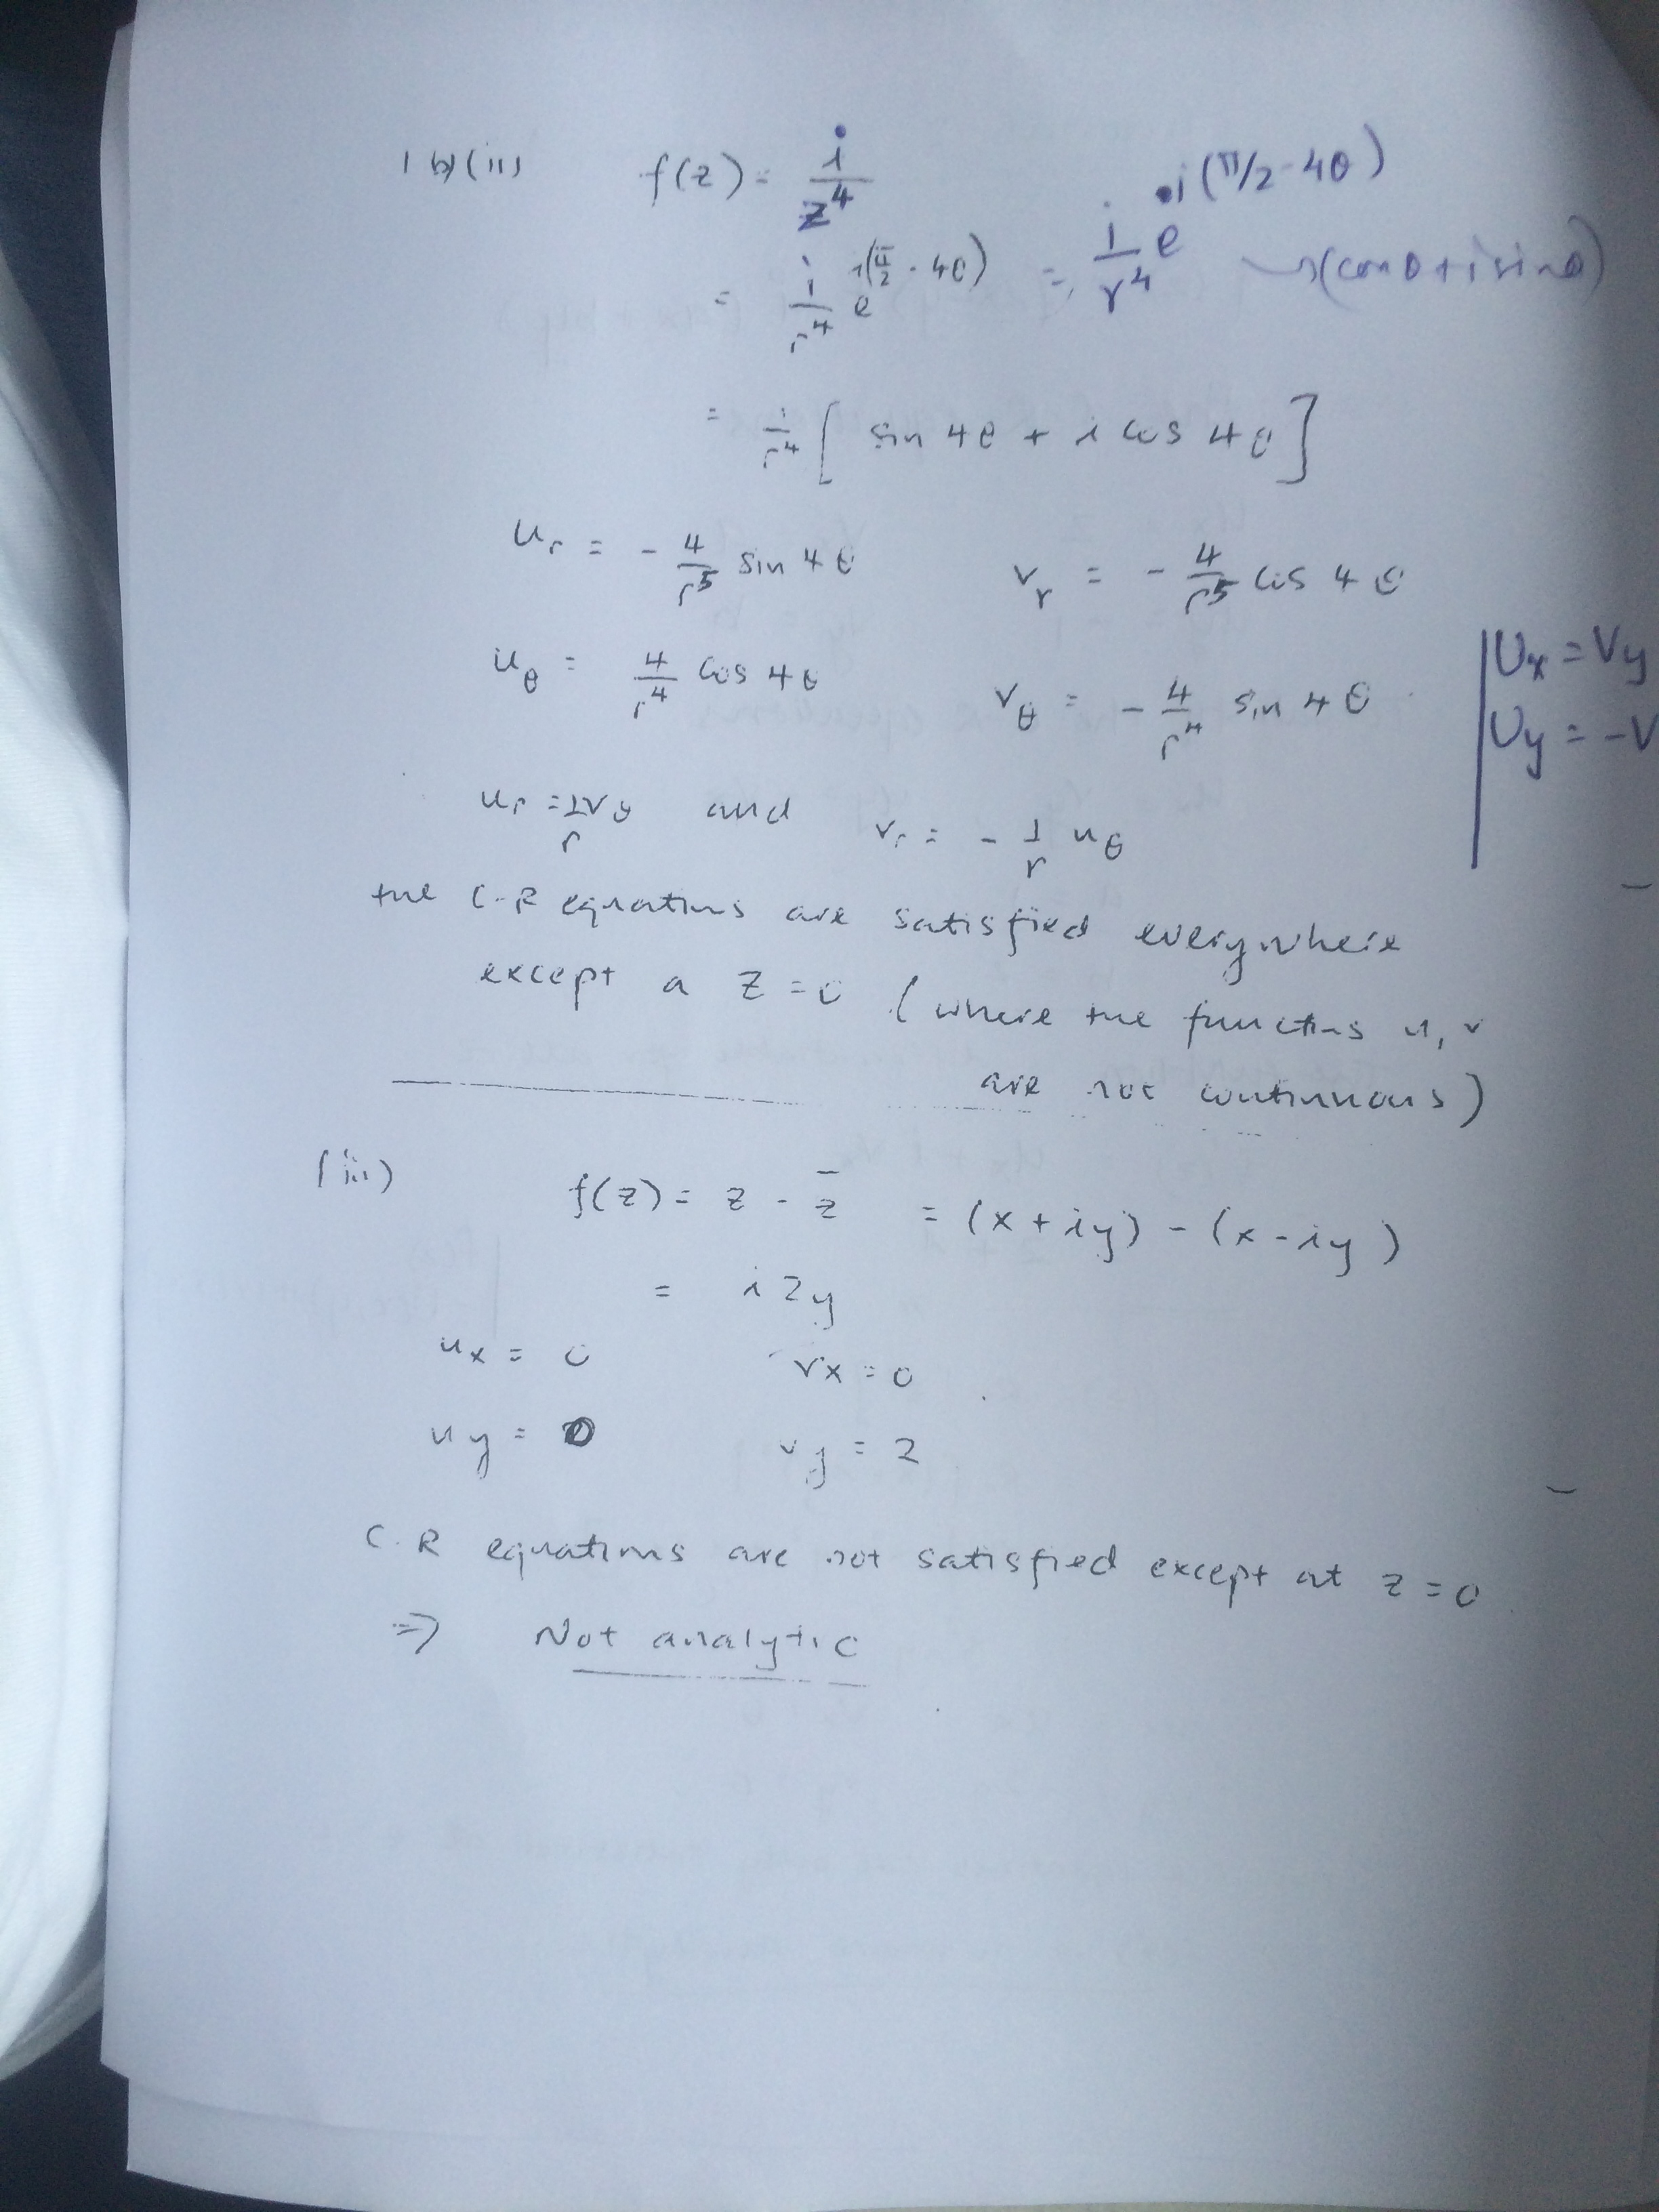 1 b) (ii) f(z) = i/z^4
= 1/r^4 e^i(π/2 - 4θ) = 1/r^4 e^i(π/2 - 4θ) → (cos θ + i sin θ)
= 1/r^4 [ sin 4θ + i cos 4θ ]
u_r = - 4/r^5 sin 4θ v_r = - 4/r^5 cos 4θ
u_θ = 4/r^4 cos 4θ v_θ = - 4/r^4 sin 4θ
| Ux = Vy
| Uy = -V
u_r = 1/r v_θ and v_r = - 1/r u_θ
the C-R equations are satisfied everywhere
except a z = 0 (where the functions u, v
are not continuous)
(iii) f(z) = z - z̄ = (x + iy) - (x - iy)
= i 2y
u_x = 0 v_x = 0
u_y = 0 v_y = 2
C.R equations are not satisfied except at z = 0
⇒ Not analytic